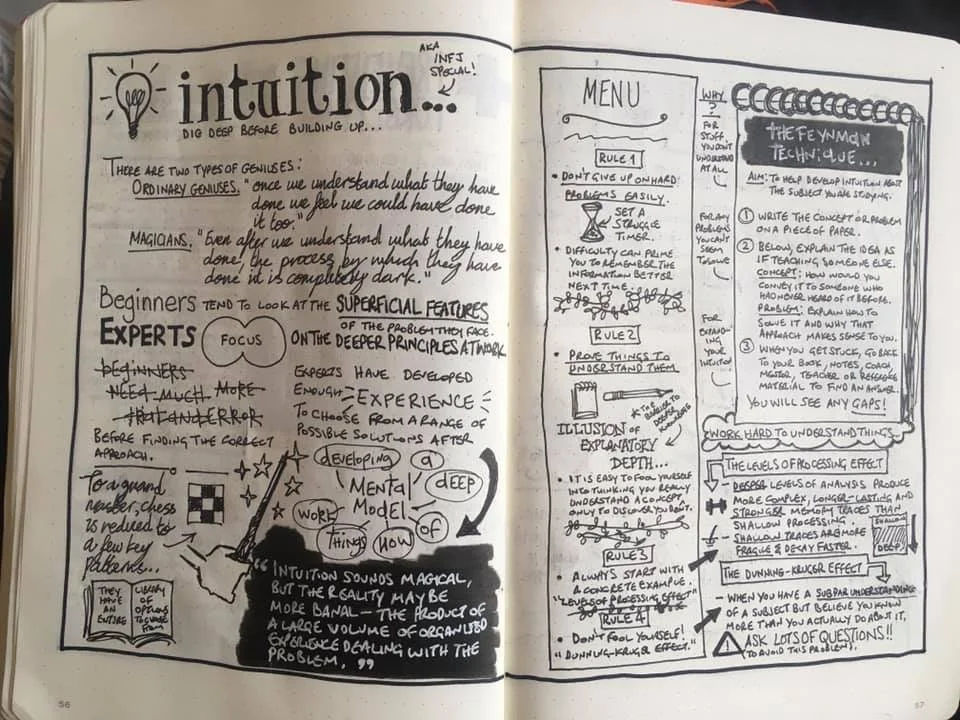 AKA
INFJ
SPECIAL!
intuition...
DIG DEEP BEFORE BUILDING UP...
THERE ARE TWO TYPES OF GENIUSES:
ORDINARY GENIUSES, "once we understand what they have
done we feel we could have done
it too."
MAGICIANS, "Even after we understand what they have
done, the process by which they have
done it is completely dark."
Beginners TEND TO LOOK AT THE SUPERFICIAL FEATURES
OF THE PROBLEM THEY FACE.
EXPERTS FOCUS ON THE DEEPER PRINCIPLES AT WORK
BEGINNERS
NEED MUCH MORE
TRIAL AND ERROR
BEFORE FINDING THE CORRECT
APPROACH.
EXPERTS HAVE DEVELOPED
ENOUGH EXPERIENCE
TO CHOOSE FROM A RANGE OF
POSSIBLE SOLUTIONS AFTER
DEVELOPING A
DEEP
Mental
Model
OF
HOW
THINGS
WORK
To a grand
master, chess
is reduced to
a few key
patterns...
THEY
HAVE
AN
ENTIRE
LIBRARY
OF
OPTIONS
TO CHOOSE
FROM
"INTUITION SOUNDS MAGICAL,
BUT THE REALITY MAY BE
MORE BANAL - THE PRODUCT OF
A LARGE VOLUME OF ORGANISED
EXPERIENCE DEALING WITH THE
PROBLEM."
56
MENU
RULE 1
• DON'T GIVE UP ON HARD
PROBLEMS EASILY.
SET A
STRUGGLE
TIMER.
• DIFFICULTY CAN PRIME
YOU TO REMEMBER THE
INFORMATION BETTER
NEXT TIME.
RULE 2
• PROVE THINGS TO
UNDERSTAND THEM
* THE BARRIER TO
DEEPER
ILLUSION OF
EXPLANATORY
DEPTH...
• IT IS EASY TO FOOL YOURSELF
INTO THINKING YOU REALLY
UNDERSTAND A CONCEPT,
ONLY TO DISCOVER YOU DON'T.
RULE 3
• ALWAYS START WITH
A CONCRETE EXAMPLE.
"LEVELS OF PROCESSING EFFECT"
RULE 4
• DON'T FOOL YOURSELF!
"DUNNING-KRUGER EFFECT."
WHY
?
FOR
STUFF,
YOU DON'T
UNDERSTAND
AT ALL
FOR ANY
PROBLEMS
YOU CAN'T
SEEM
TO SOLVE
FOR
EXPAND-
ING
YOUR
INTUITION
THE FEYNMAN
TECHNIQUE...
AIM: TO HELP DEVELOP INTUITION ABOUT
THE SUBJECT YOU ARE STUDYING.
① WRITE THE CONCEPT OR PROBLEM
ON A PIECE OF PAPER.
② BELOW, EXPLAIN THE IDEA AS
IF TEACHING SOMEONE ELSE.
CONCEPT: HOW WOULD YOU
CONVEY IT TO SOMEONE WHO
HAD NEVER HEARD OF IT BEFORE.
PROBLEM: EXPLAIN HOW TO
SOLVE IT AND WHY THAT
APPROACH MAKES SENSE TO YOU.
③ WHEN YOU GET STUCK, GO BACK
TO YOUR BOOK, NOTES, COACH,
MENTOR, TEACHER OR REFERENCE
MATERIAL TO FIND AN ANSWER.
YOU WILL SEE ANY GAPS!
WORK HARD TO UNDERSTAND THINGS
THE LEVELS OF PROCESSING EFFECT
- DEEPER LEVELS OF ANALYSIS PRODUCE
MORE COMPLEX, LONGER-LASTING AND
STRONGER MEMORY TRACES THAN
SHALLOW PROCESSING.
- SHALLOW TRACES ARE MORE
FRAGILE & DECAY FASTER.
SHALLOW
DEEP
THE DUNNING-KRUGER EFFECT
- WHEN YOU HAVE A SUBPAR UNDERSTANDING
OF A SUBJECT BUT BELIEVE YOU KNOW
MORE THAN YOU ACTUALLY DO ABOUT IT,
! ASK LOTS OF QUESTIONS!!
(TO AVOID THIS PROBLEM).
57